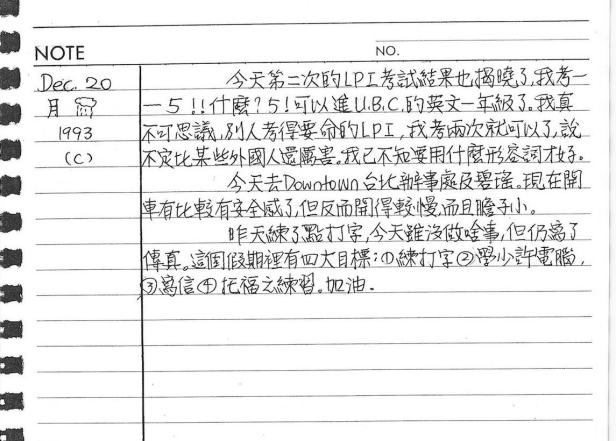 NOTE
NO.
Dec. 20
月
1993
(C)
今天第二次的LPI考試結果也揭曉了,我考一
一5!!什麼?5!可以進U.B.C.的英文一年級了。我真
不可思議,別人考得要命的LPI,我考兩次就可以了,說
不定比某些外國人還厲害。我已不知要用什麼形容詞才好。
今天去Downtown台北辦事處及碧瑤。現在開
車有比較有安全感了,但反而開得較慢,而且膽子小。
昨天練了點打字,今天雖沒做啥事,但仍寫了
傳真。這個假期裡有四大目標:①練打字②學少許電腦,
③寫信④托福之練習。加油.